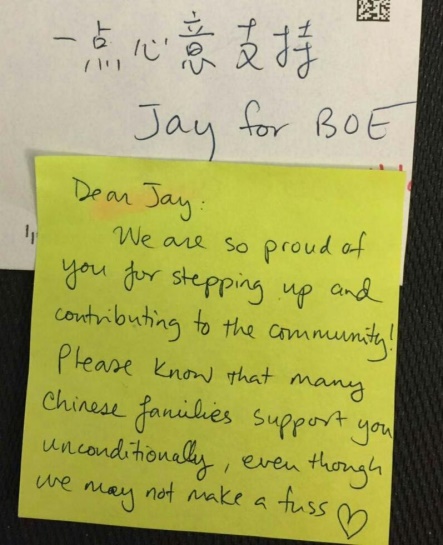 一点心意支持
Jay for BOE
Dear Jay:
We are so proud of
you for stepping up and
contributing to the community!
Please know that many
Chinese families support you
unconditionally, even though
we may not make a fuss ♡